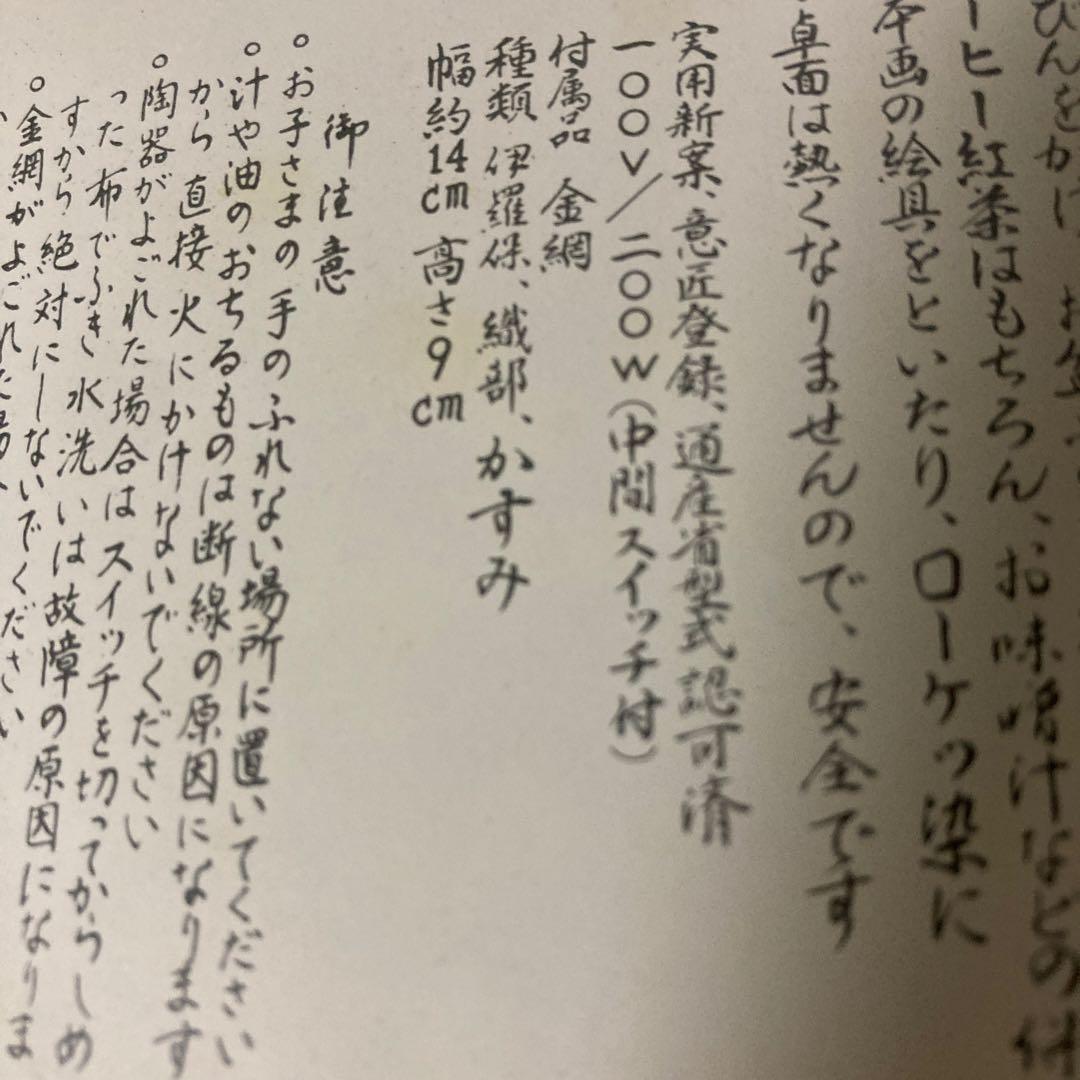 びんをかけ、お
ーヒー紅茶はもちろん、お味噌汁などの
本画の絵具をといたり、ローケツ染に
卓面は熱くなりませんので、安全です
実用新案、意匠登録、通産省型式認可済
一〇〇V/二〇〇W(中間スイッチ付)
付属品 金網
種類 伊羅保、織部、かすみ
幅約14cm 高さ9cm
御注意
○お子さまの手のふれない場所に置いてください
○汁や油のおちるものは断線の原因になります
から直接火にかけないでください
○陶器がよごれた場合はスイッチを切ってからしめ
った布でふき水洗いは故障の原因になりま
すから絶対にしないでください
○金網がよごれた場